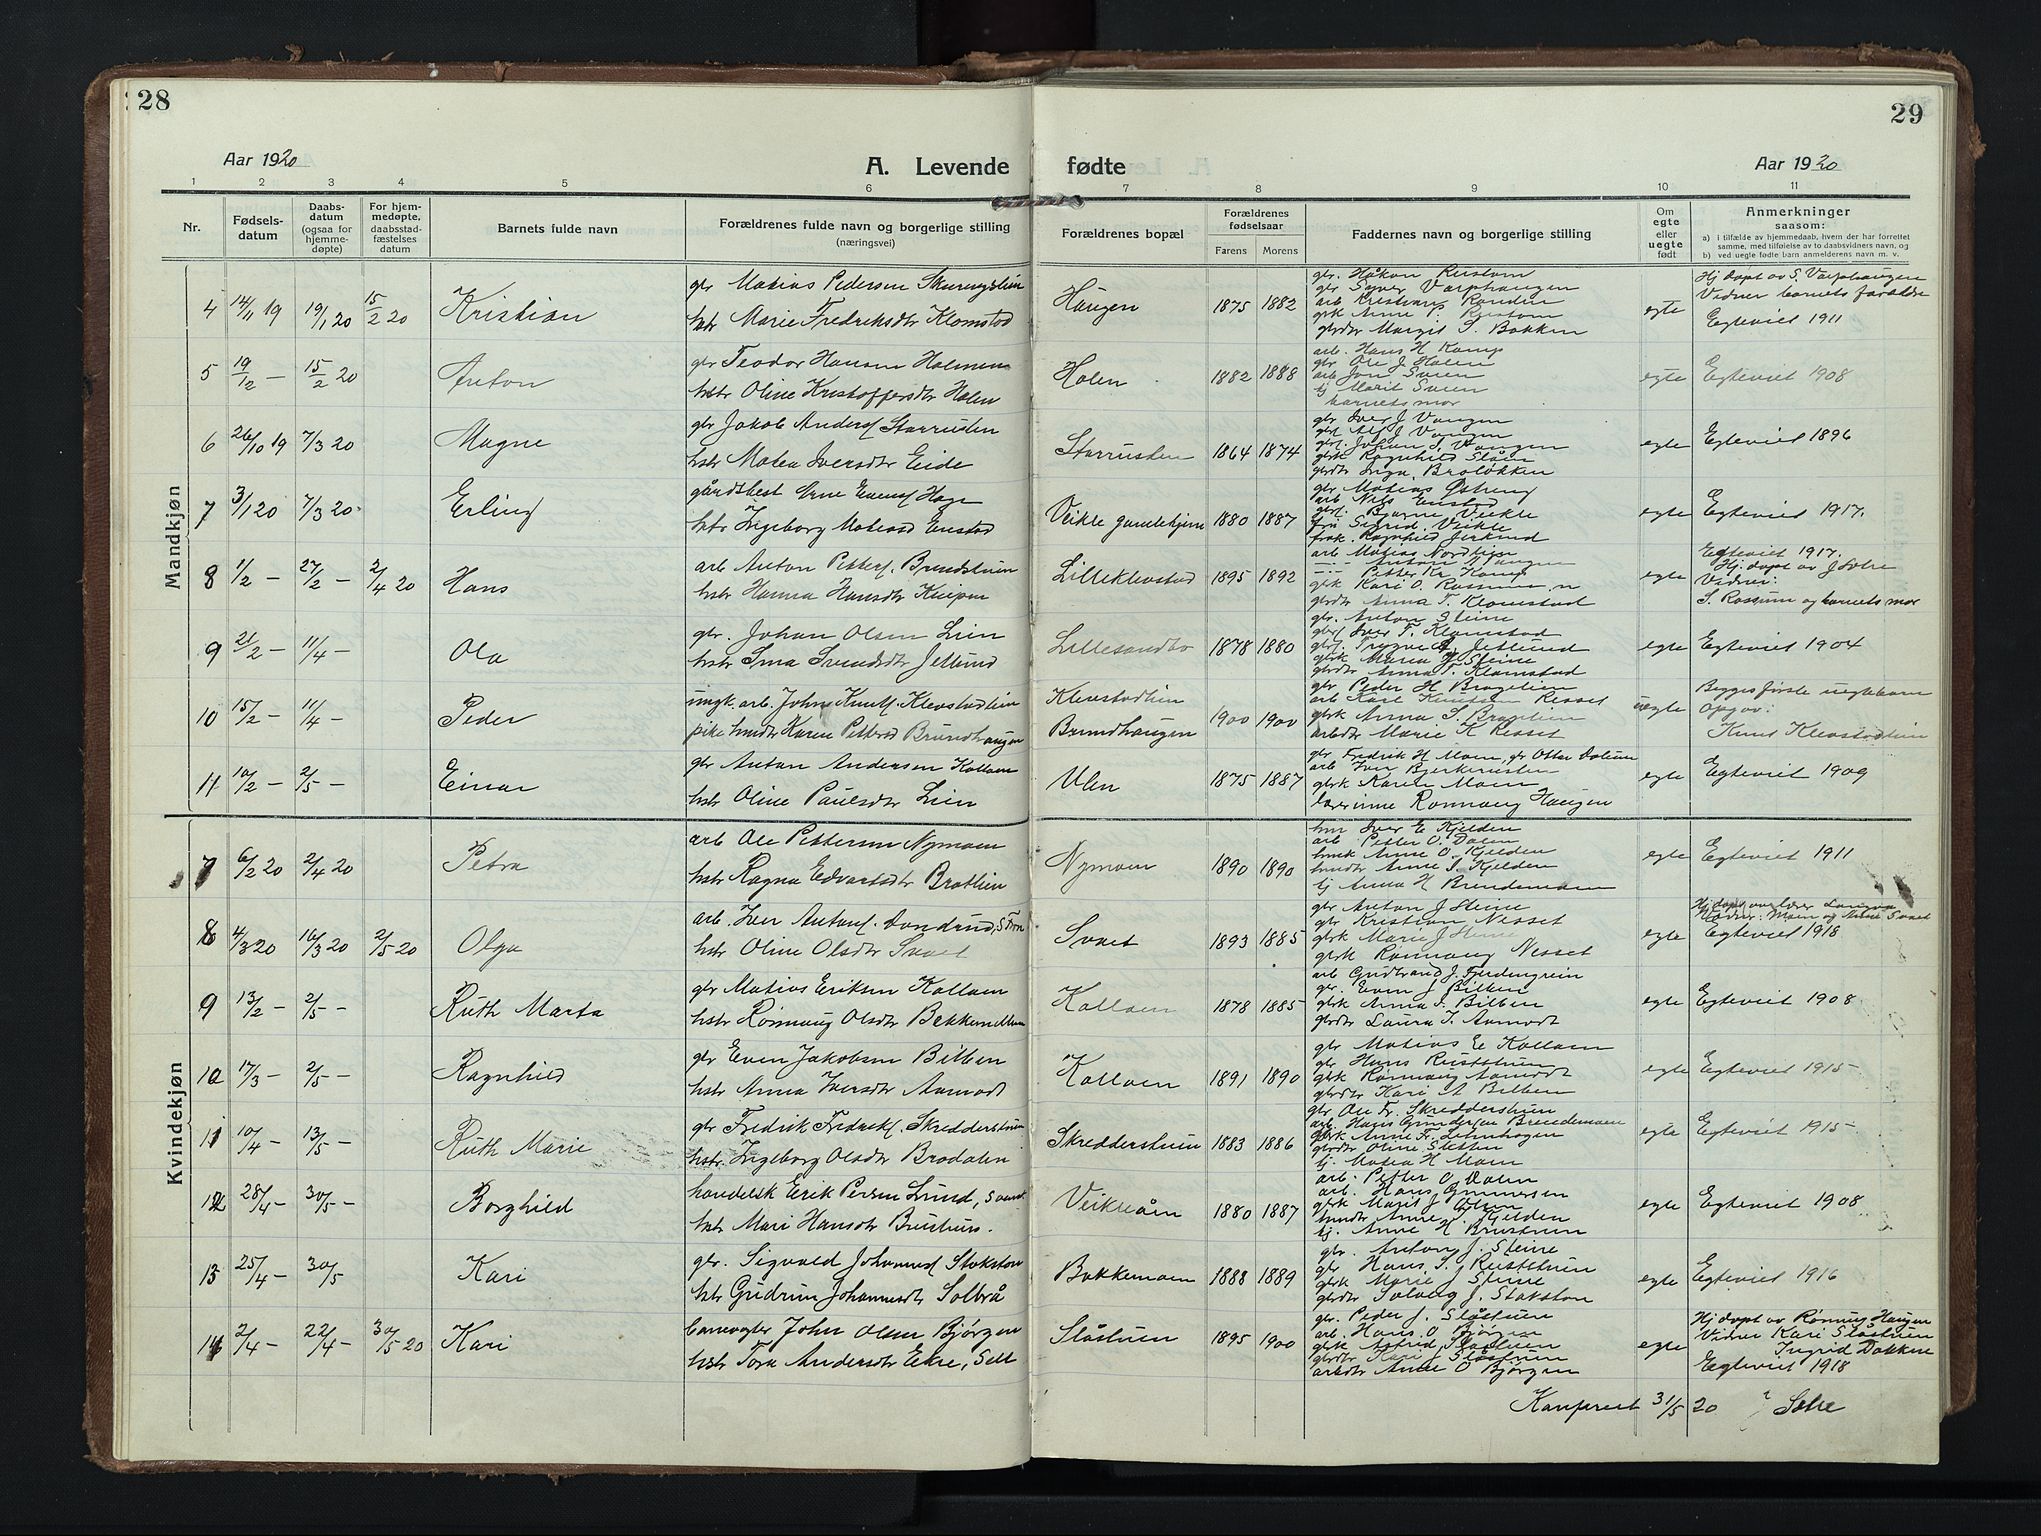 28
29
Aar 1920
A. Levende fødte
Aar 1920
1 2 3 4 5 6 7 8 9 10 11
Nr.
Fødsels-
datum
Daabs-
datum
(ogsaa for
hjemme-
døpte)
For hjem-
medøpte,
daabsstad-
fæstelses
datum
Barnets fulde navn
Forældrenes fulde navn og borgerlige stilling
(næringsvei)
Forældrenes bopæl
Forældrenes
fødselsaar
Farens Morens
Faddernes navn og borgerlige stilling
Om
egte
eller
uegte
født
Anmerkninger
saasom:
a) i tilfælde av hjemmedaab, hvem der har forrettet
samme, med tilføielse av to daabsvidners navn, og
b) ved uegte fødte barn anmelderens navn m. v.
Mandkjøn
4 14/11 19 19/1 20 15/2 20 Kristian
gbr Matias Pedersen
hstr Marie Fredriksdtr Klomstad
Haugen 1875 1882
gbr. Håkon Rustom
gbr Syver Varphaugen
arb Kristian Randen
gbrk Anne P. Rustom
gbrdtr Margit S. Bakken
egte
Hj døpt av S. Varphaugen
Vidner barnets forældre
Egteviet 1911
5 19/12 – 15/2 20 Anton
gbr Teodor Hansen Holmen
hstr Oline Kristoffersdtr Holen
Holen 1882 1888
arb. Hans H Kamp
gbr Ole J Holen
arb Jon Sveen
tj Marit Sveen
barnets mor
egte Egteviet 1908
6 26/10 19 7/3 20 Magne
gbr Jakob Andersf Storrusten
hstr Matea Iversdtr Eide
Storrusten 1864 1874
gbr Iver J Vangen
gbrk Ragnhild Slåen
gbrdtr Inga Braløkken
egte Egteviet 1896
7 3/1 20 7/3 20 Erling
gårdsbest Arne Evensf Hage
hstr Ingeborg Matiasd Enstad
Veikle gamlehjem 1880 1887
gbr Matias Østreng
arb Nils Enstad
gbrs. Bjarne Veikle
fru Sigrid Veikle
frøk. Ragnhild Jerkind
egte Egteviet 1917.
8 1/2 – 27/2 – 2/4 20 Hans
arb Anton Petterf. Brundstuen
hstr Hanna Hansdtr Kleipen
Lilleklevstad 1895 1892
arb Matias Nordlien
Petter Kr. Kamp
gbrk Kari O. Rossum
gbrdtr Anna T. Klomstad
egte
Egteviet 1917.
Hj. døpt av J Solre
Vidner:
S. Rossum og barnets mor
9 21/2 – 11/4 – Ola
gbr. Johan Olsen Lien
hstr Ima Svendsdtr Jetlund
Lillesandbo 1878 1880
gbr. Anton Steine
gbrs Iver F. Klomstad
gbrs. Trygve Jetlund
gbrk Maria J Steine
gbrdtr Anna T. Klomstad
egte Egteviet 1904
10 15/2 – 11/4 – Peder
ungk. arb. John Knutf. Klevstadlien
pike husdtr Karen Pettersd Brundhaugen
Klevstadlien
Brundhaugen
1900 1900
gbr Peder H Bragelien
arb Karl Knutsen Risset
gbrk Anna S. Bragelien
arbdtr Marie K Risset
uegte
Begges første uegtebarn
Opgav:
Knut Klevstadlien
11 10/2 – 2/5 – Einar
gbr Anton Andersen Kolloen
hstr Oline Paulsdtr Lien
Ulen 1875 1887
gbr Fredrik H Moen, gbr Ottar Dalum
arb Iver Bjerkerusten
gbrk Karen Moen
lærerinne Rønnaug Haugen
egte Egteviet 1909
Kvindekjøn
7 6/2 20 2/4 20 Petra
arb Ole Pettersen Nymoen
hstr Ragna Edvartsdtr Bratlien
Nymoen 1890 1890
hm Iver E Kjelden
arb Petter O. Dalen
husk Anne O. Kjelden
husdtr Anne I. Kjelden
tj Anna H Brendemoen
egte Egteviet 1911
8 4/3 20 16/3 20 2/5 20 Olga
arb. Iver Antonf. Dondrud, S Fron
hstr Oline Olsdtr Svaet
Svaet 1893 1885
gbr Anton J Steine
gbr Kristian Nesset
gbrk Marie J Steine
gbrk Rønnaug Nesset
egte
Egteviet 1918
9 13/2 – 2/5 – Ruth Marta
gbr Matias Eriksen Kolloen
hstr Rønnaug Olsdtr Bekkemellem
Kolloen 1878 1885
arb Gudbrand J. Fjerdengrein
gbr. Even J Bilben
gbrk Anna I. Bilben
gbrdtr Laura I. Aamodt
egte Egteviet 1908
10 17/3 – 2/5 – Ragnhild
gbr Even Jakobsen Bilben
hstr Anna Iversdtr Aamodt
Kolloen 1891 1890
gbr Matias E Kolloen
gbr Hans Ruststuen
gbrk Rønnaug Aamodt
gbrdtr Kari A Bilben
egte Egteviet 1915
11 10/4 – 13/5 – Ruth Marie
gbr Fredrik Fredrikf. Skredderstuen
hstr. Ingeborg Olsdtr Brodalen
Skredderstuen 1883 1886
gbr Ole Fr. Skredderstuen
arb. Hans Gundersen Brendemoen
gbrk Anne F. Lehnhagen
gbrdtr Oline Sletten
tj. Matea H Moen
egte Egteviet 1915
12 28/4 – 30/5 – Borghild
handelsk Erik Persen Lund,
hstr Mari Hansdtr Brustuen.
Veikleåen 1880 1887
arb. Petter O Dalen
arb. Hans Gunnersen
gbrk Marit J Olsen
husdtr Anne I. Kjelden
tj. Anne H Brustuen
egte Egteviet 1908
13 25/4 – 30/5 Kari
gbr. Sigvald Johannesf Stokstad
hstr Gudrun Johannesdtr Solbrå
Bakkemoen 1888 1889
gbr. Anton J. Steine
gbr Hans S. Ruststuen
gbrk Marie J Steine
gbrdtr Solveig J. Stokstad
egte Egteviet 1916
14 2/4 – 22/4 – 30/5 20 Kari
banevogter John Olsen Bjørgen
hstr Tora Andersdtr Ekre, Sell
Slåstuen 1895 1900
gbr. Peder J. Slåstuen
arb. Hans O Bjørgen
gbrk Astrid Slåstuen
gbrdtr Kari J Slåstuen
arbdtr Anne O Bjørgen
egte
Hj døpt av Rønnaug Haugen
Vidner Kari Slåstuen
Ingrid Dokken
Egteviet 1918
Konferert 31/5 20 Solre